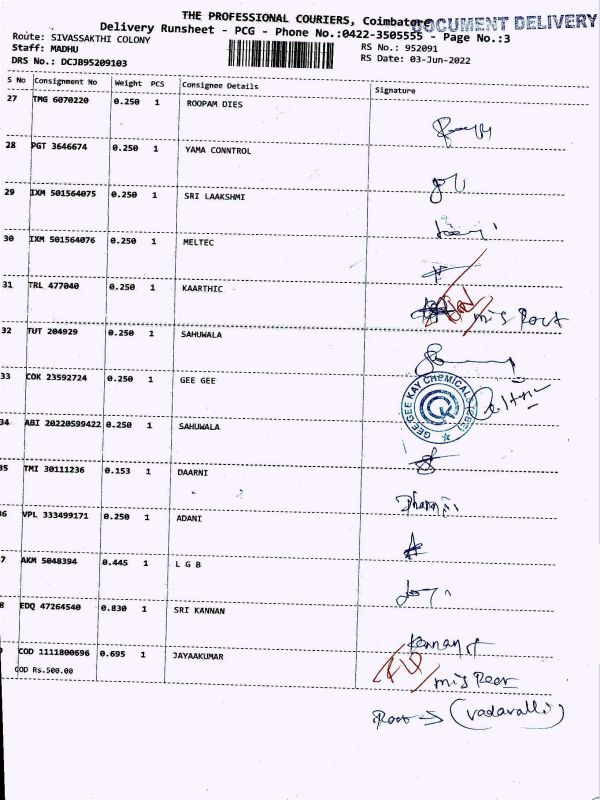 THE PROFESSIONAL COURIERS, Coimbatore
DOCUMENT DELIVERY
Delivery Runsheet - PCG - Phone No.:0422-3505555 - Page No.:3
Route: SIVASSAKTHI COLONY
RS No.: 952091
Staff: MADHU
RS Date: 03-Jun-2022
DRS No.: DCJB95209103
S No Consignment No Weight PCS Consignee Details Signature
27 TMG 6070220 0.250 1 ROOPAM DIES
28 PGT 3646674 0.250 1 YAMA CONNTROL
29 IXM 501564075 0.250 1 SRI LAAKSHMI
30 IXM 501564076 0.250 1 MELTEC
31 TRL 477040 0.250 1 KAARTHIC
mis Rout
32 TUT 204929 0.250 1 SAHUWALA
33 COK 23592724 0.250 1 GEE GEE
GEE GEE KAY CHEMICALS (CBE)
34 ABI 20220599422 0.250 1 SAHUWALA
35 TMI 30111236 0.153 1 DAARNI
36 VPL 333499171 0.250 1 ADANI
7 AKM 5048394 0.445 1 L G B
8 EDQ 47264540 0.830 1 SRI KANNAN
COD 1111800696 0.695 1 JAYAAKUMAR
COD Rs.500.00
Rout → (vadavalli)